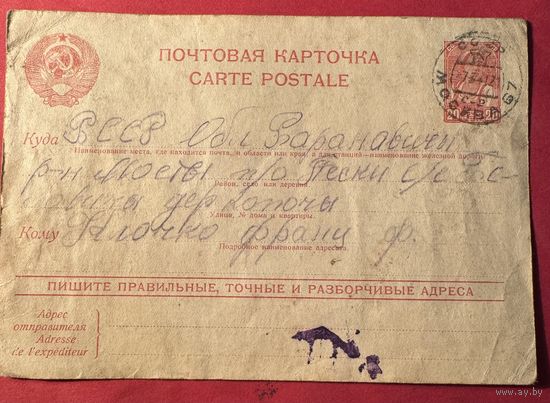 ПОЧТОВАЯ КАРТОЧКА
CARTE POSTALE
20 20
Куда БССР Обл Баранавичи
Наименование места, где находится почта, и области или края, а для станций—наименование железной дороги
р-н Мосты п/о Пески с/с
Район, село или деревня.
дер
Улица, № дома и квартиры.
Кому франц ф.
Подробное наименование адресата.
ПИШИТЕ ПРАВИЛЬНЫЕ, ТОЧНЫЕ И РАЗБОРЧИВЫЕ АДРЕСА
Адрес
отправителя
Adresse
de l'expéditeur
www.ay.by